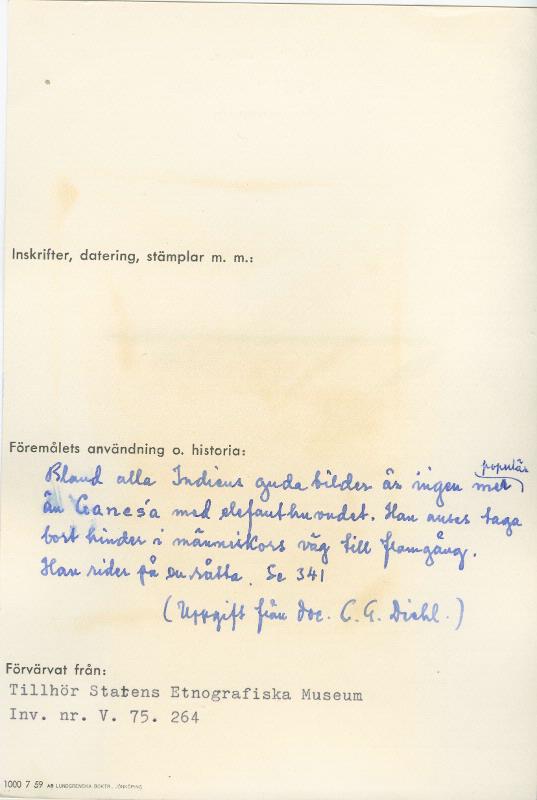 Inskrifter, datering, stämplar m. m.:
Föremålets användning o. historia:
Bland alla Indiens gudabilder är ingen mer populär
än Ganes'a med elefanthuvudet. Han anses taga
bort hinder i människors väg till framgång.
Han rider på en råtta. Se 341
(Uppgift från doc. C. G. Diehl.)
Förvärvat från:
Tillhör Statens Etnografiska Museum
Inv. nr. V. 75. 264
1000 7 59 AB LUNDGRENSKA BOKTR., JÖNKÖPING